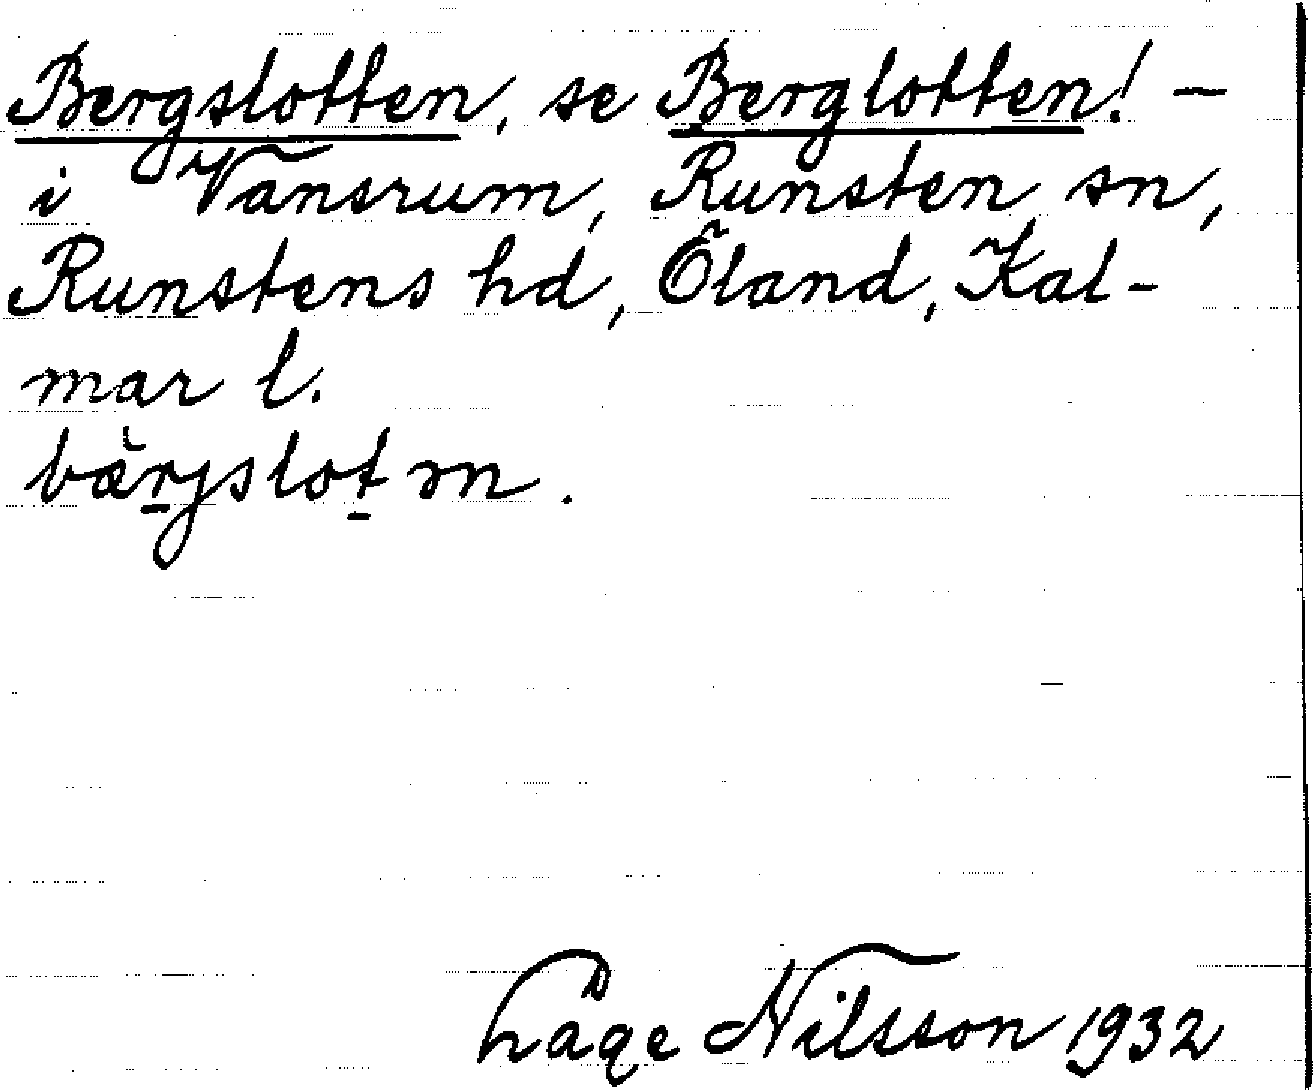 Bergslotten, se Berglotten! –
i Vansrum, Runsten sn,
Runstens hd, Öland, Kal-
mar l.
Nilsson 1932